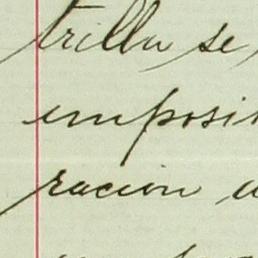 trilla se
imposi
racion